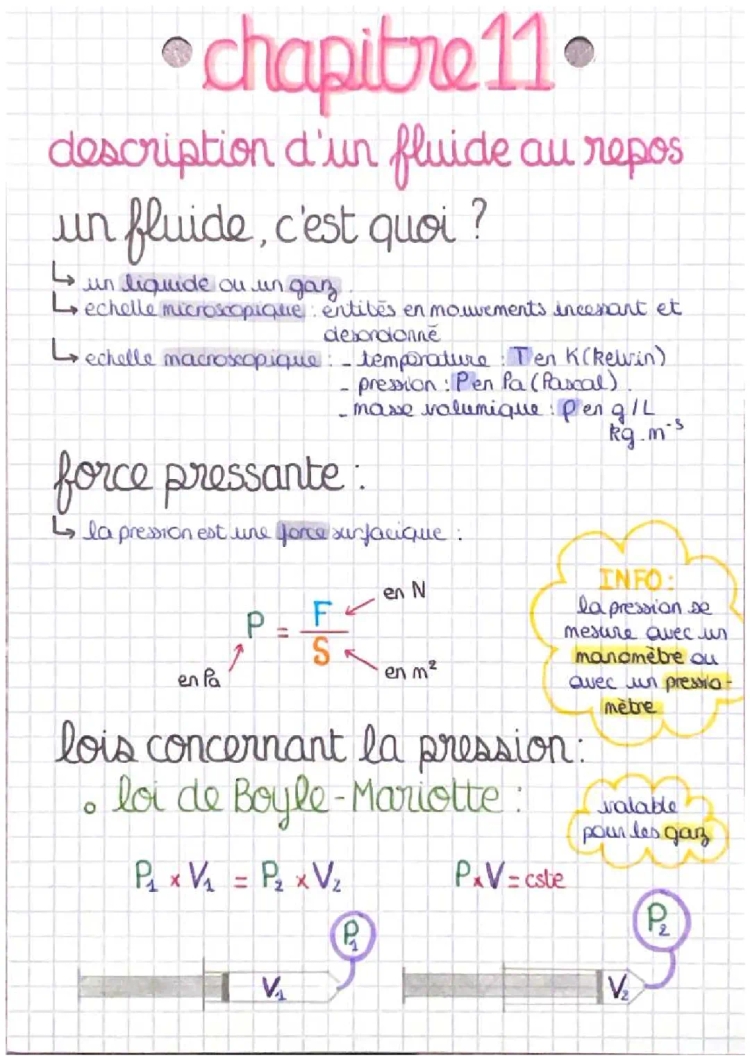 chapitre 11
description d'un fluide au repos
un fluide, c'est quoi ?
↳ un liquide ou un gaz.
↳ echelle microscopique : entités en mouvements incessant et
desordonné
↳ echelle macroscopique : - température : T en K (Kelvin)
- pression : P en Pa (Pascal).
- masse volumique : ρ en g/L
kg.m⁻³
force pressante :
↳ la pression est une force surfacique :
INFO :
la pression se
mesure avec un
manomètre ou
avec un pressio-
mètre
P = F / S
en N
en Pa
en m²
lois concernant la pression :
• loi de Boyle-Mariotte :
valable
pour les gaz
P₁ x V₁ = P₂ x V₂
P x V = cste
P₁
V₁
P₂
V₂